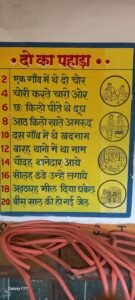 दो का पहाड़ा
2 एक गाँव में थे दो चोर
4 चोरी करते चारो ओर
6 छः किलो पीते थे दूध
8 आठ किलो खाते अमरूद
10 दस गाँव में थे बदनाम
12 बारह थाने में था नाम
14 चौदह थानेदार आये
16 सोलह डंडे उन्हें लगाये
18 अठ्ठारह मील दिया धकेल
20 बीस साल की हो गई जेल